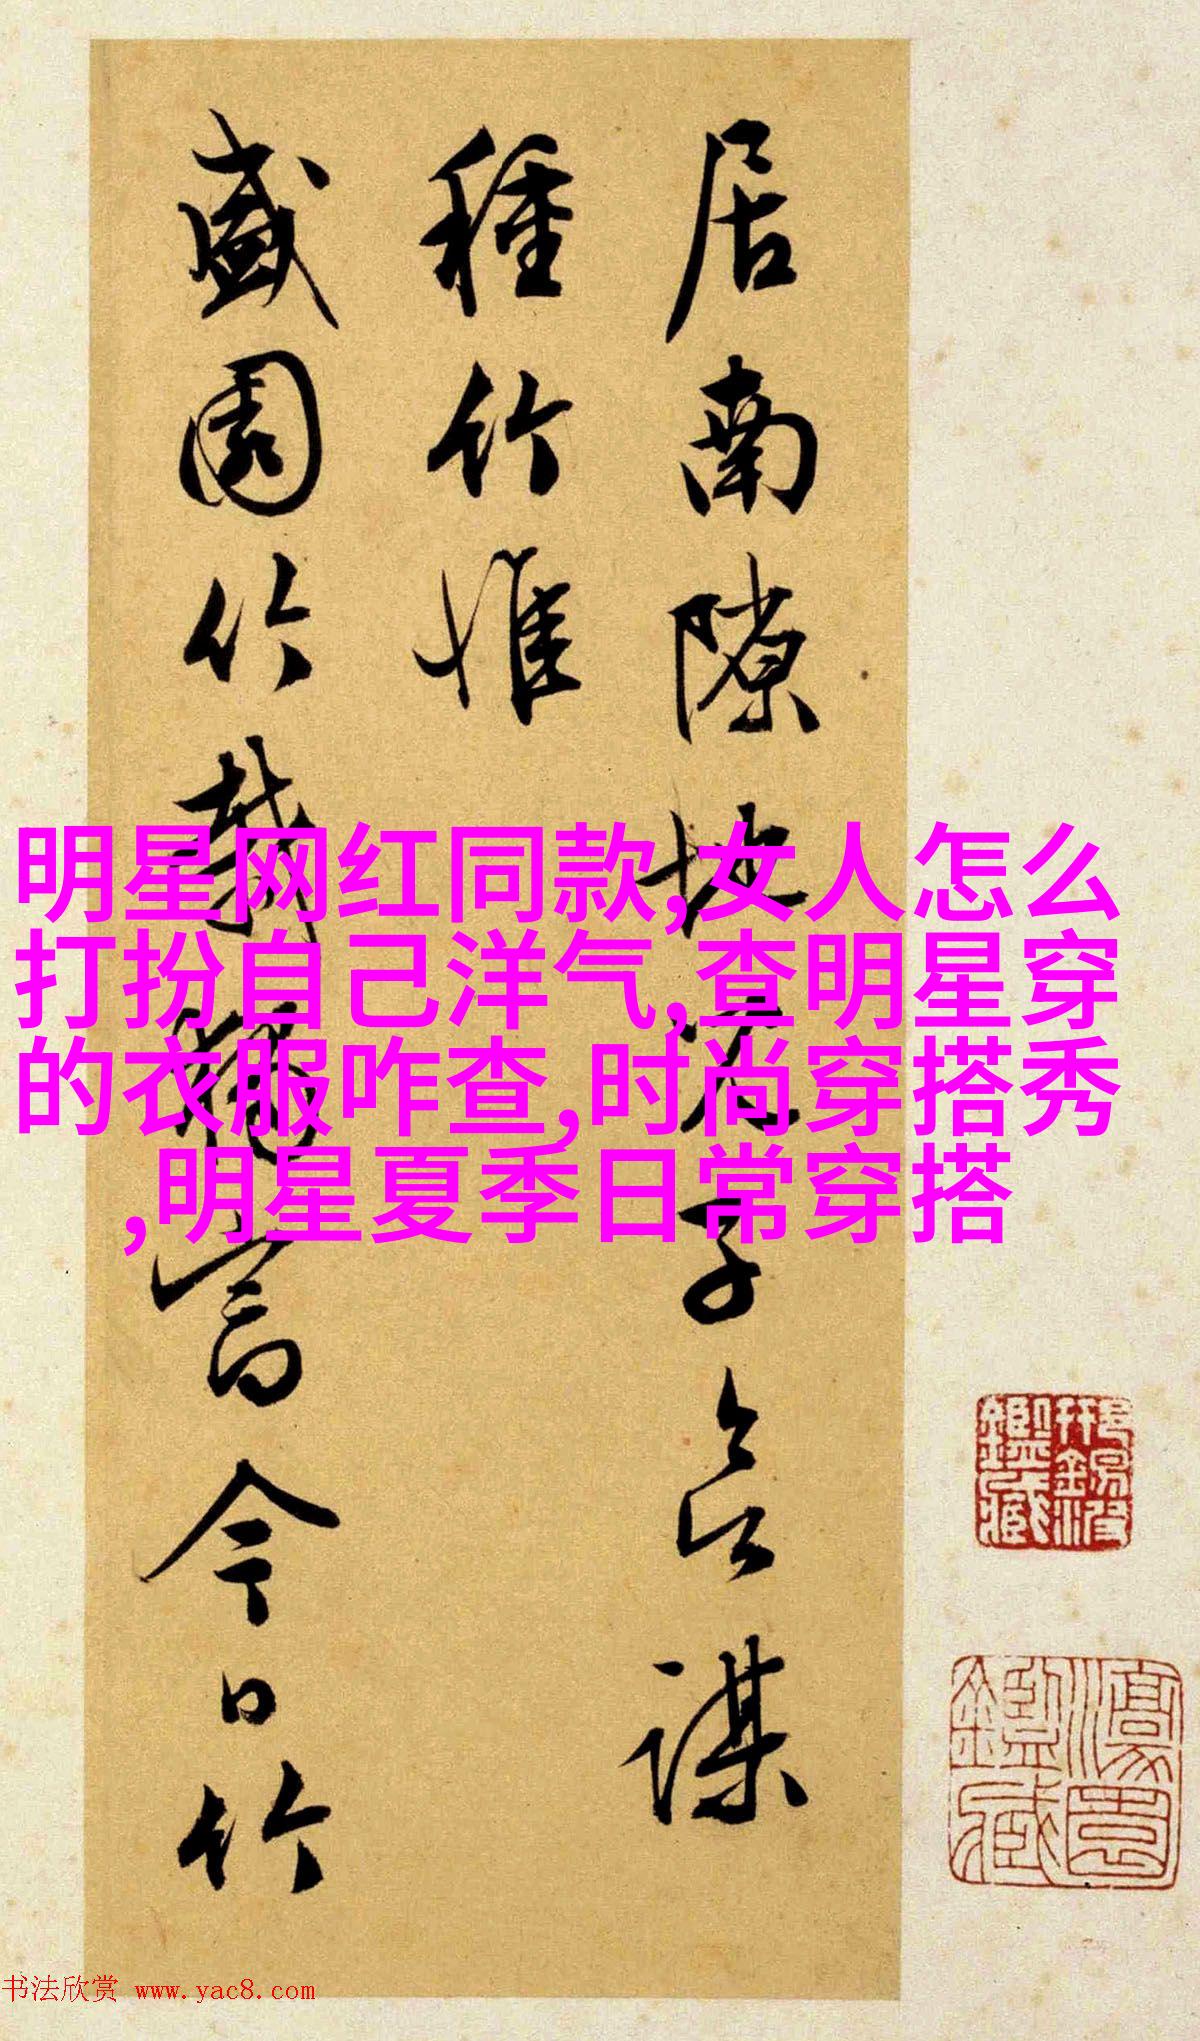 居南隙地
子合謀
種竹惟
盛園竹栽
言今日竹
明星网红同款,女人怎么
打扮自己洋气,查明星穿
的衣服咋查,时尚穿搭秀
,明星夏季日常穿搭
鑑藏
鑑藏
书法欣赏 www.yac8.com